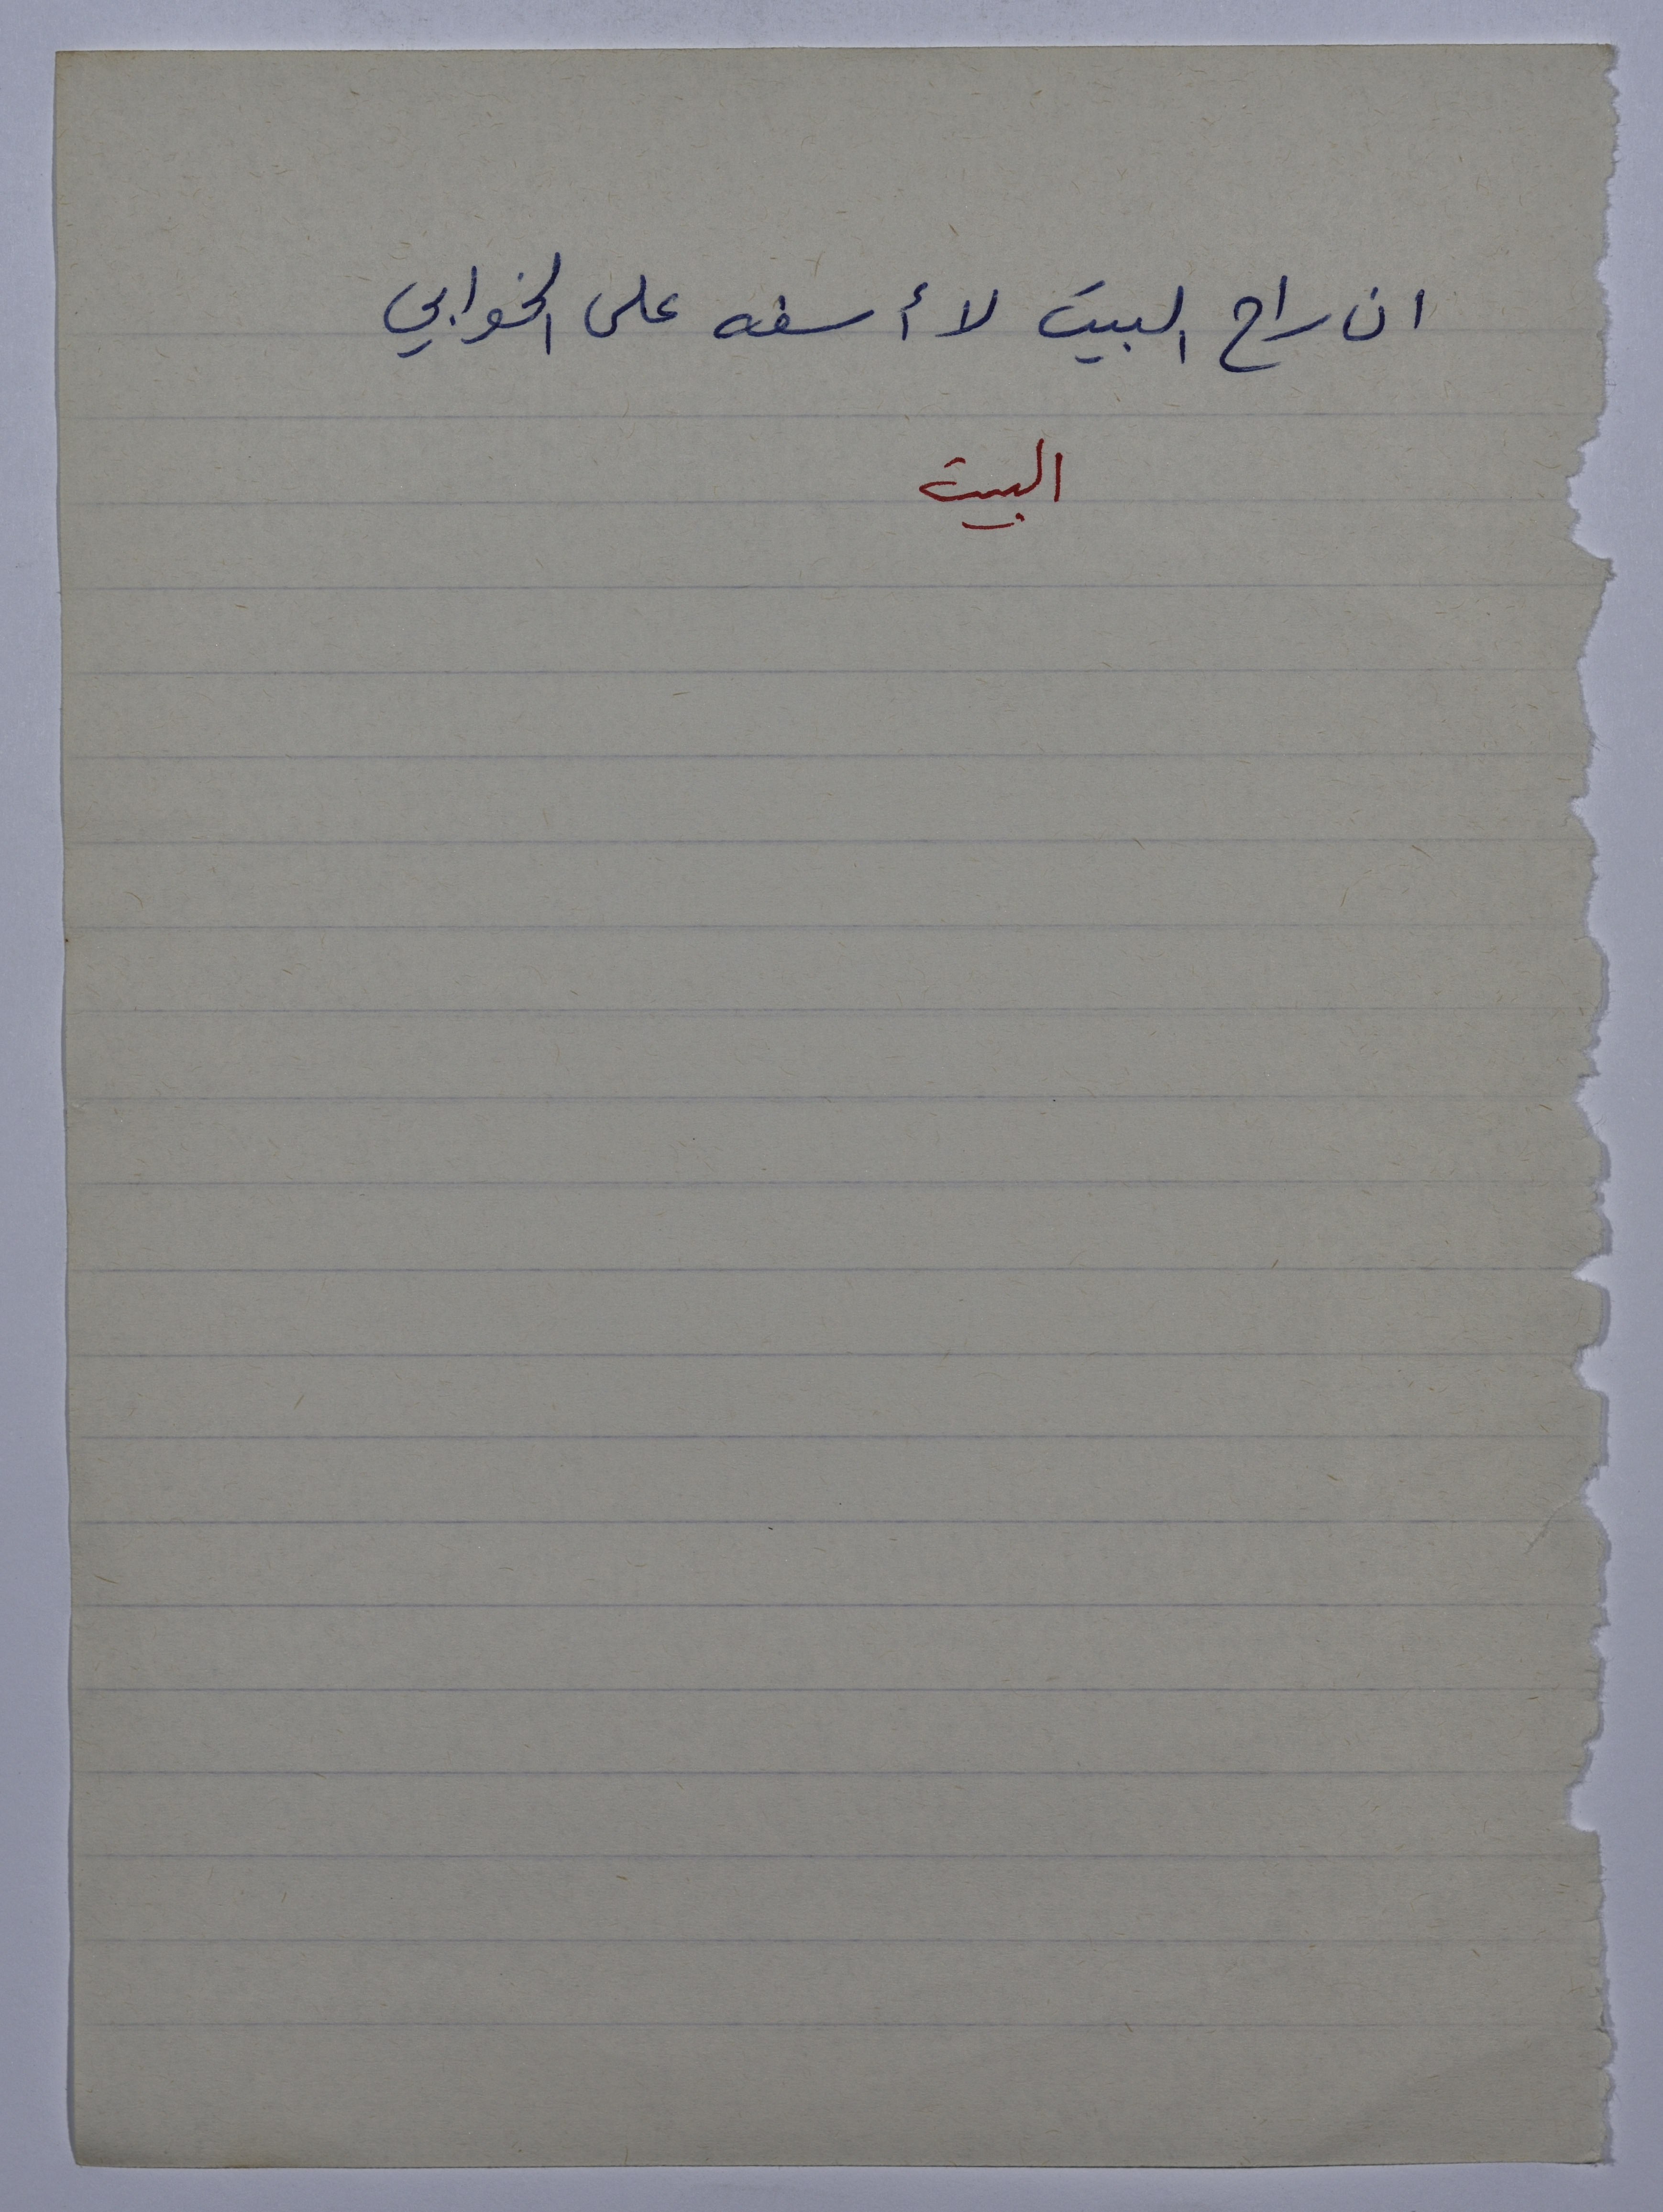 ان راح البيت لا أسفه على الخوابي
البيت